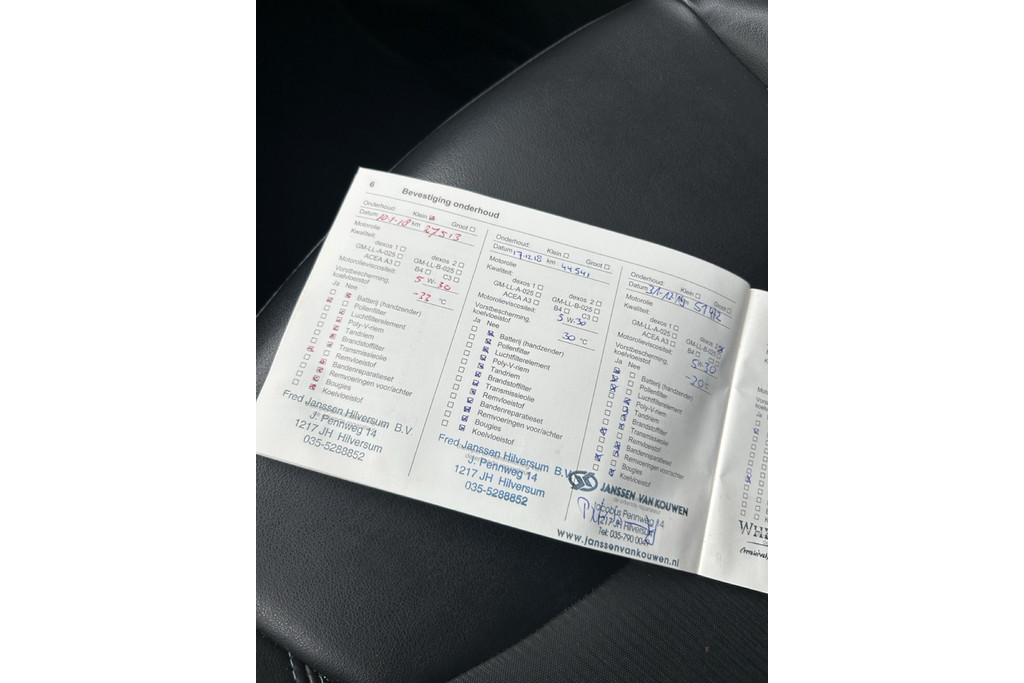 6
Bevestiging onderhoud
Onderhoud: Klein Groot
Datum 10-1-18 km 27513
Motorolie
Kwaliteit:
dexos 1 dexos 2
GM-LL-A-025 GM-LL-B-025
ACEA A3 B4 C3
Motorolieviscositeit: 5 W- 30
Vorstbescherming,
koelvloeistof -33 °C
Ja Nee
Batterij (handzender)
Pollenfilter
Luchtfilterelement
Poly-V-riem
Tandriem
Brandstoffilter
Transmissieolie
Remvloeistof
Bandenreparatieset
Remvoeringen voor/achter
Bougies
Koelvloeistof
Fred Janssen Hilversum B.V.
J. Pennweg 14
1217 JH Hilversum
035-5288852
Onderhoud: Klein Groot
Datum 17.12.18 km 44541
Motorolie
Kwaliteit:
dexos 1 dexos 2
GM-LL-A-025 GM-LL-B-025
ACEA A3 B4 C3
Motorolieviscositeit: 5 W- 30
Vorstbescherming,
koelvloeistof 30 °C
Ja Nee
Batterij (handzender)
Pollenfilter
Luchtfilterelement
Poly-V-riem
Tandriem
Brandstoffilter
Transmissieolie
Remvloeistof
Bandenreparatieset
Remvoeringen voor/achter
Bougies
Koelvloeistof
Fred Janssen Hilversum B.V.
J. Pennweg 14
1217 JH Hilversum
035-5288852
Onderhoud: Klein Groot
Datum
Motorolie
Kwaliteit:
dexos 1 dexos 2
GM-LL-A-025 GM-LL-B-025
ACEA A3 B4
Motorolieviscositeit: 5 W- 30
Vorstbescherming,
koelvloeistof -20
Ja Nee
Batterij (handzender)
Pollenfilter
Luchtfilterelement
Poly-V-riem
Tandriem
Brandstoffilter
Transmissieolie
Remvloeistof
Bandenreparatieset
Remvoeringen voor/achter
Bougies
Koelvloeistof
JANSSEN VAN KOUWEN
Jacobus Pennweg 14
1217 JH Hilversum
Tel: 035-790 00
www.janssenvankouwen.nl